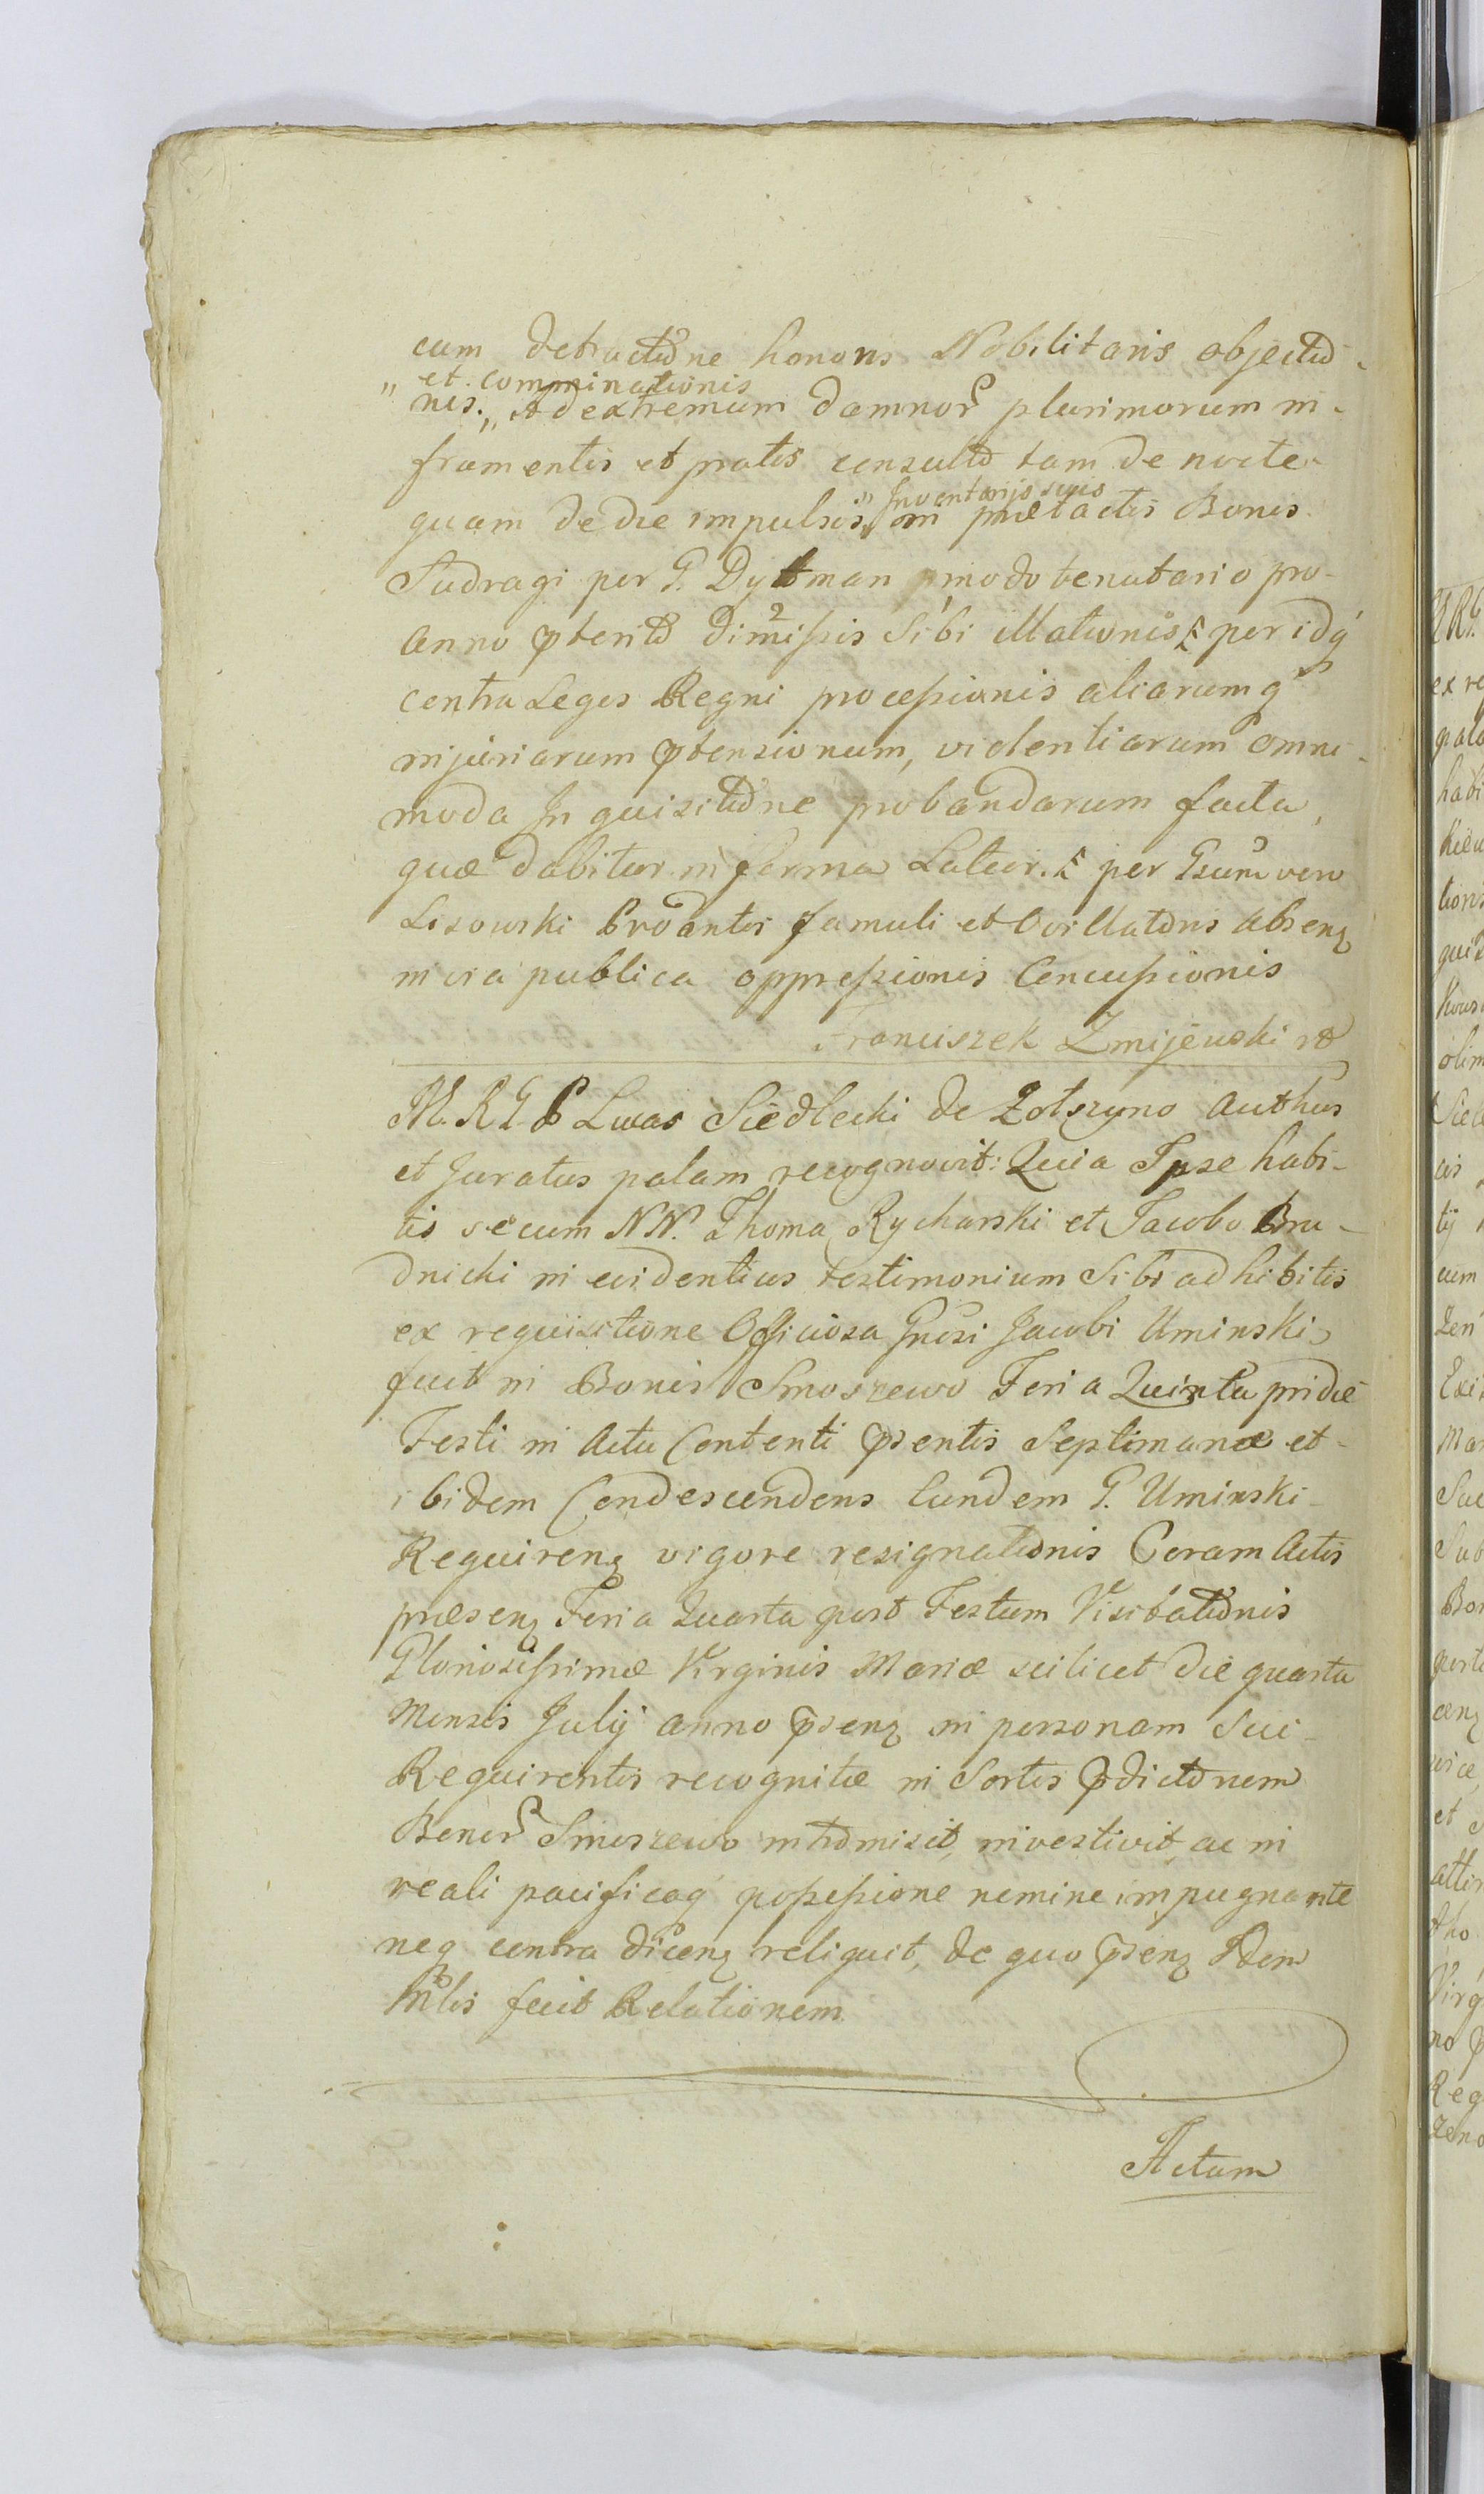 cum detractõne honoris Nobilitaris objectio-
„ et comminationis
nis. „ Ad extremum damnor plurimorum in-
frumentis et pratis consulto tam de nocte
quam de die impulsis „ Inventarijs suis in prætactis Bonis
Sudragi per G. Dytman pmodo tenutario pro
Anno pterito dimissis Sibi illationis & per idq
contra Leges Regni processionis aliarumq
injuriarum ptensionum, violentiarum omni-
moda Inquisitõne probandarum facta,
quæ dabitur in forma Lateor. & per Gsum vero
Lisowski Proantis famuli et Ovillatoris absenq
in via publica oppressionis Concussionis
Franciszek Zmijewski
M. R. G. P Lucas Siedlecki de Zotszyno Authus
et Juratus palam recognovit: Quia Ipse habi-
tis secum NN. Thoma Rycharski et Jacobo Bru-
dnicki in evidentius testimonium Sibi adhibitis
ex requisitione Officiosa Gnosi Jacobi Uminski
fuit in Bonis Smoszewo Feria Quinta pridie
Festi in Actu Contenti psentis Septimanæ et
ibidem Condescendens Eundem G. Uminski
Requirenq vigore resignationis Coram Actis
præsenq Feria Quarta post Festum Visitationis
Gloriosissimæ Virginis Mariæ scilicet die quarta
Mensis Julij anno psenq in personam Sui
Requirentis recognitæ in Sortis pdictõnem
Bonor Smoszewo intromisit, investivit, ac in
reali pacificaq possessione nemine impugnante
neq contra dicenq reliquit, de quo psenq Idem
Mlis fecit Relationem.
Actum